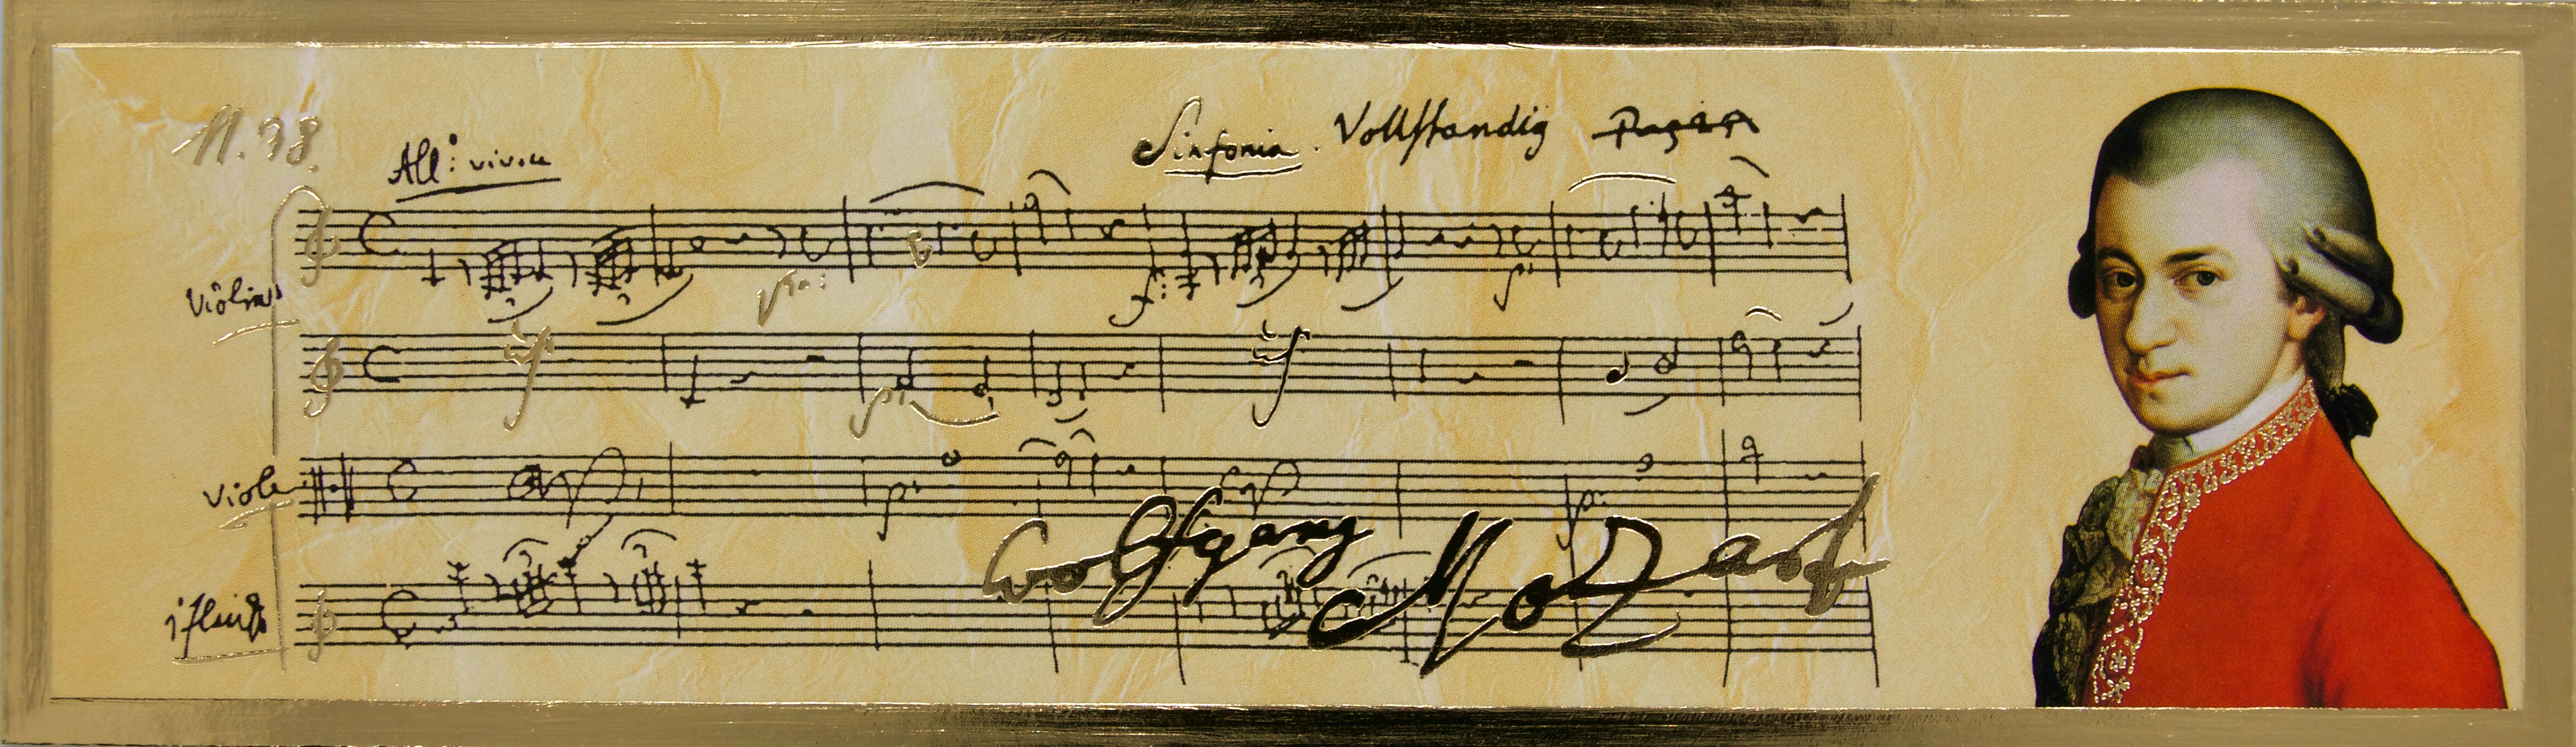 N. 38.
All: vivace
Sinfonia. Vollständig
Violini
Viole
Wolfgang Mozart